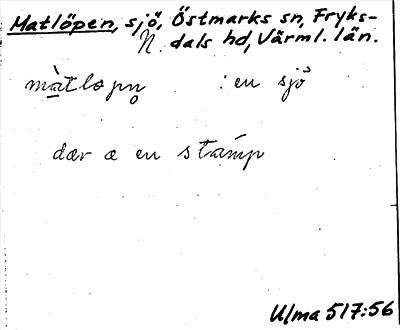 Matlöpen, sjö, Östmarks sn, Fryks-
N. dals hd, Värml. län.
màtlopn̥ : en sjö
dær æ en stamp
Ulma 517:56